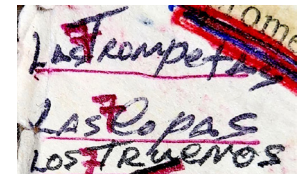 ome
Las 7 Trompetas
Las 7 copas
Los 7 TRUENOS